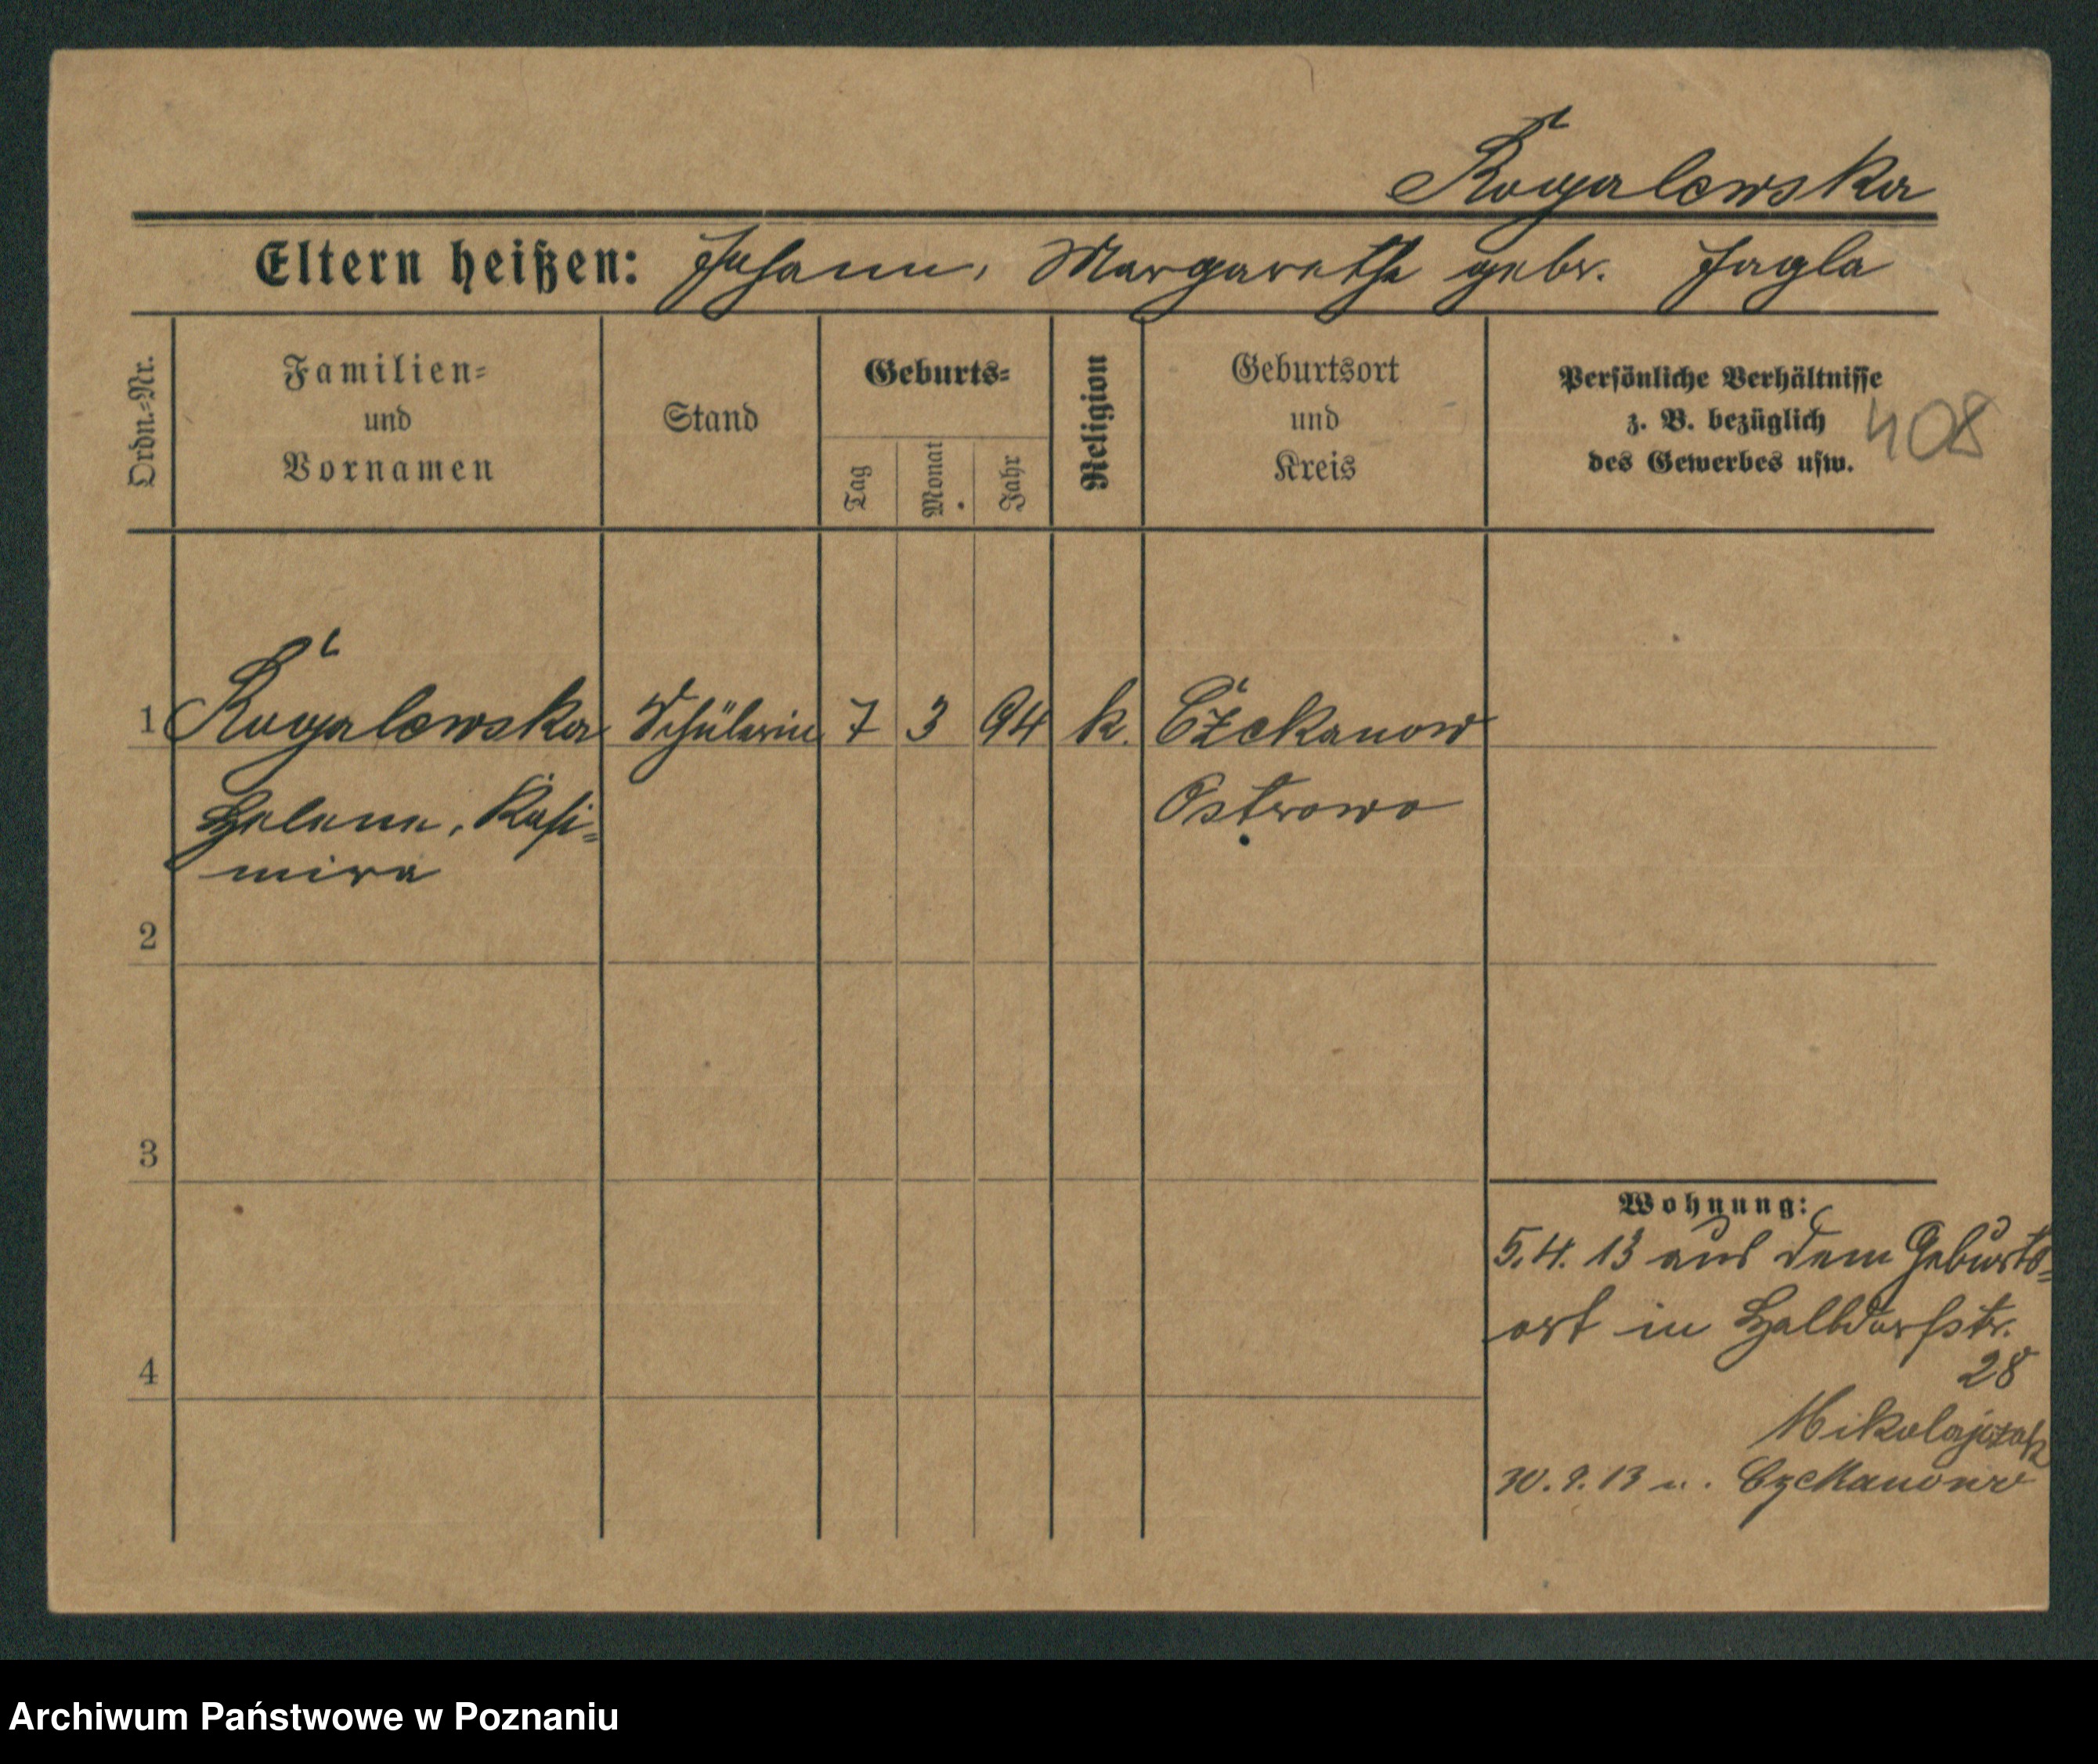 Rogalewska
Eltern heißen: Johann, Margaretha gebr. Jagla
Ordn.-Nr.
Familien-
und
Vornamen
Stand
Geburts-
Tag
Monat
Jahr
Religion
Geburtsort
und
Kreis
Persönliche Verhältnisse
z. B. bezüglich
des Gewerbes usw.
408
1 Rogalewska Schülerin 7 3 94 k. Czekanow
Helene, Kasi-
mira
Ostrowo
2
3
4
Wohnung:
5.4.13 aus dem Geburts-
ort in Halbdorfstr.
28
Mikolajczak
30.9.13 n. Czekanow
Archiwum Państwowe w Poznaniu